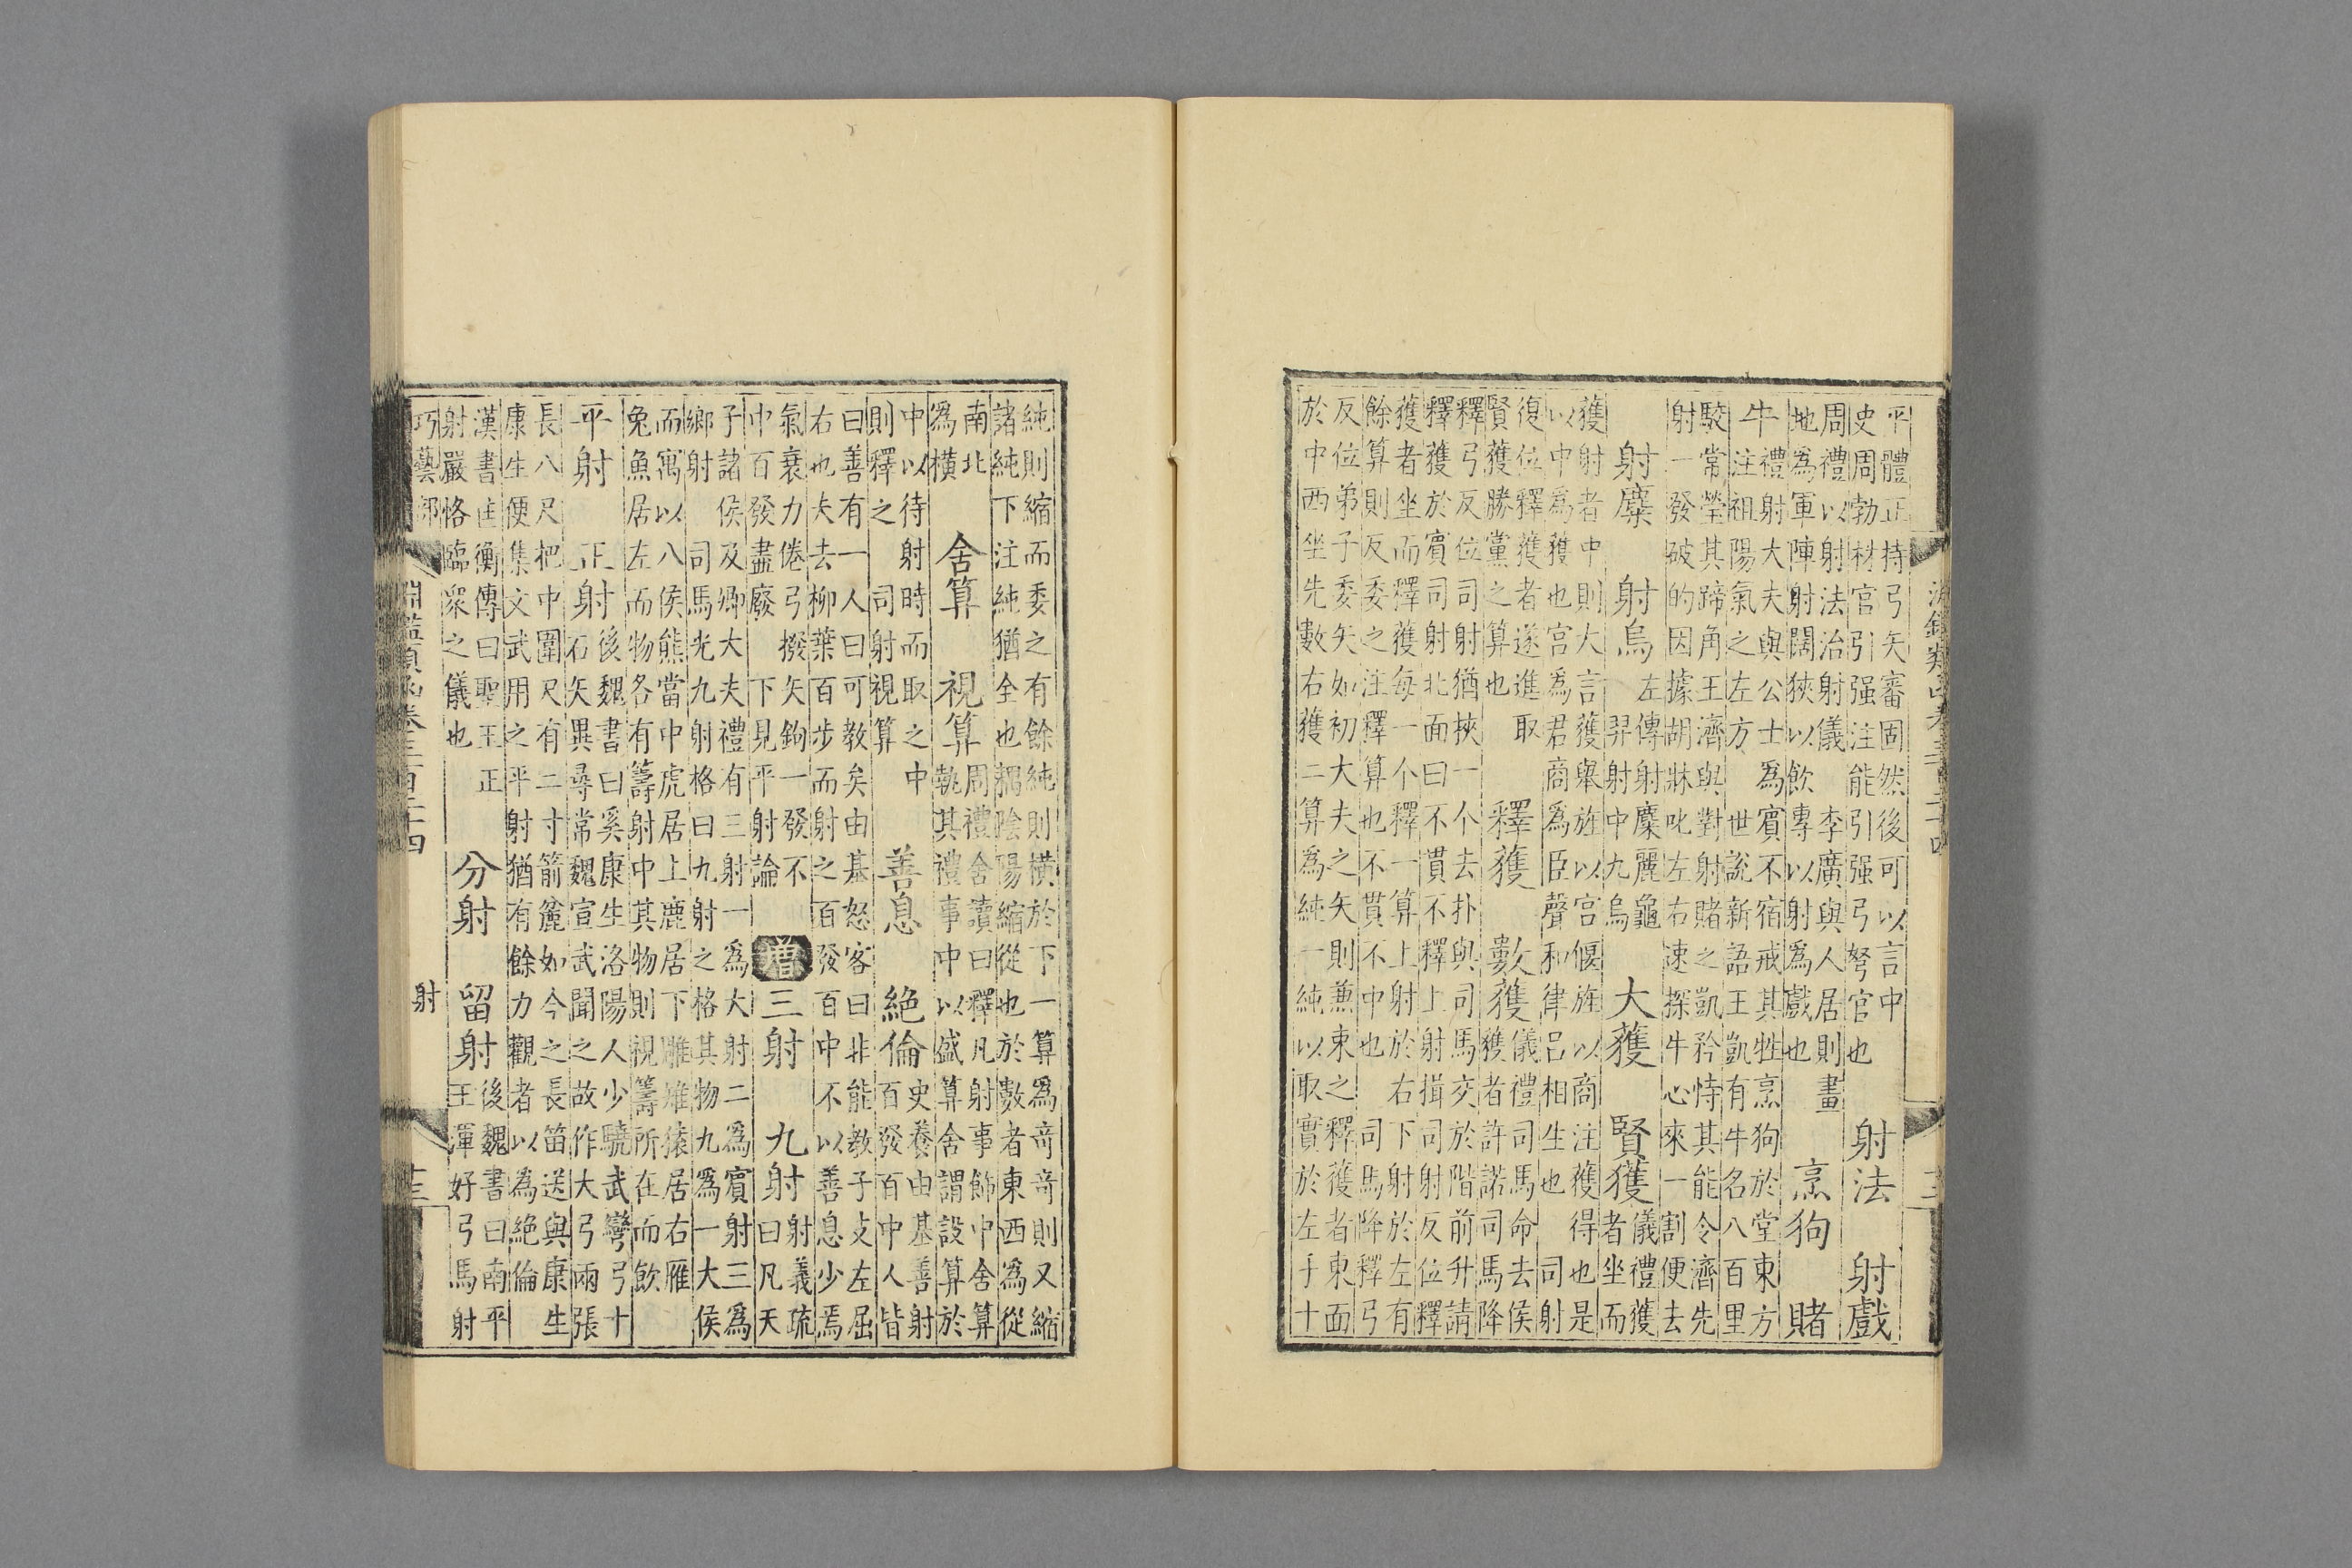 淵鑑類函卷三百二十四
平體正持弓矢審固然後可以言中
史周勃材官引强注能引强弓弩官也
射法　射戲
周禮以射法治射儀　李廣與人居則畫
地為軍陣射闊狹以飲專以射為戲也
烹狗　賭
牛
禮射大夫與公士為賓不宿戒其牲烹狗於堂東方
注祖陽氣之左方　世說新語王凱有牛名八百里
駮常瑩其蹄角王濟與對射賭之凱矜恃其能令濟先
射一發破的因據胡牀叱左右速探牛心來一割便去
射麋　射烏
左傳射麋麗龜
羿射中九烏
大獲　賢獲
儀禮獲
者坐而
獲射者中則大言獲舉旌以宮偃旌以商注獲得也是
以中為獲也宮為君商為臣聲和律呂相生也　司射
復位釋獲者遂進取
賢獲勝黨之算也
釋獲　數獲
儀禮司馬命去侯
獲者許諾司馬降
釋弓反位司射猶挾一个去扑與司馬交於階前升請
釋獲於賓司射北面曰不貫不釋上射揖司射反位釋
獲者坐而釋獲每一个釋一算上射於右下射於左有
餘算則反委之注釋算也不貫不中也　司馬降釋弓
反位弟子委矢如初大夫之矢則兼束之釋獲者東面
於中西坐先數右獲二算為純一純以取實於左手十
純則縮而委之有餘純則橫於下一算為奇奇則又縮
諸純下注純猶全也耦陰陽縮從也於數者東西為從
南北
為橫
舍算　視算
周禮舍讀曰釋凡射事飾中舍算
執其禮事中以盛算舍謂設算於
中以待射時而取之中
則釋之　司射視算
善息　絶倫
史養由基善射
百發百中人皆
曰善有一人曰可教矣由基怒客曰非能教子支左屈
右也夫去柳葉百步而射之百發百中不以善息少焉
氣衰力倦弓撥矢鉤一發不
中百發盡廢　下見平射論
增　三射　九射
射義疏
曰凡天
子諸侯及卿大夫禮有三射一為大射二為賓射三為
鄉射　司馬光九射格曰九射之格其物九為一大侯
而寓以八侯熊當中虎居上鹿居下雕雉猿居右雁
兔魚居左而物各有籌射中其物則視籌所在而飲
平射　正射
後魏書曰奚康生洛陽人少驍武彎弓十
石矢異尋常魏宣武聞之故作大弓兩張
長八尺把中圍尺有二寸箭麄如今之長笛送與康生
康生便集文武用之平射猶有餘力觀者以為絶倫
漢書匡衡傳曰聖王正
射嚴恪臨衆之儀也
分射　留射
後魏書曰南平
王渾好弓馬射
巧藝部
淵鑑類函卷三百二十四
射
十三